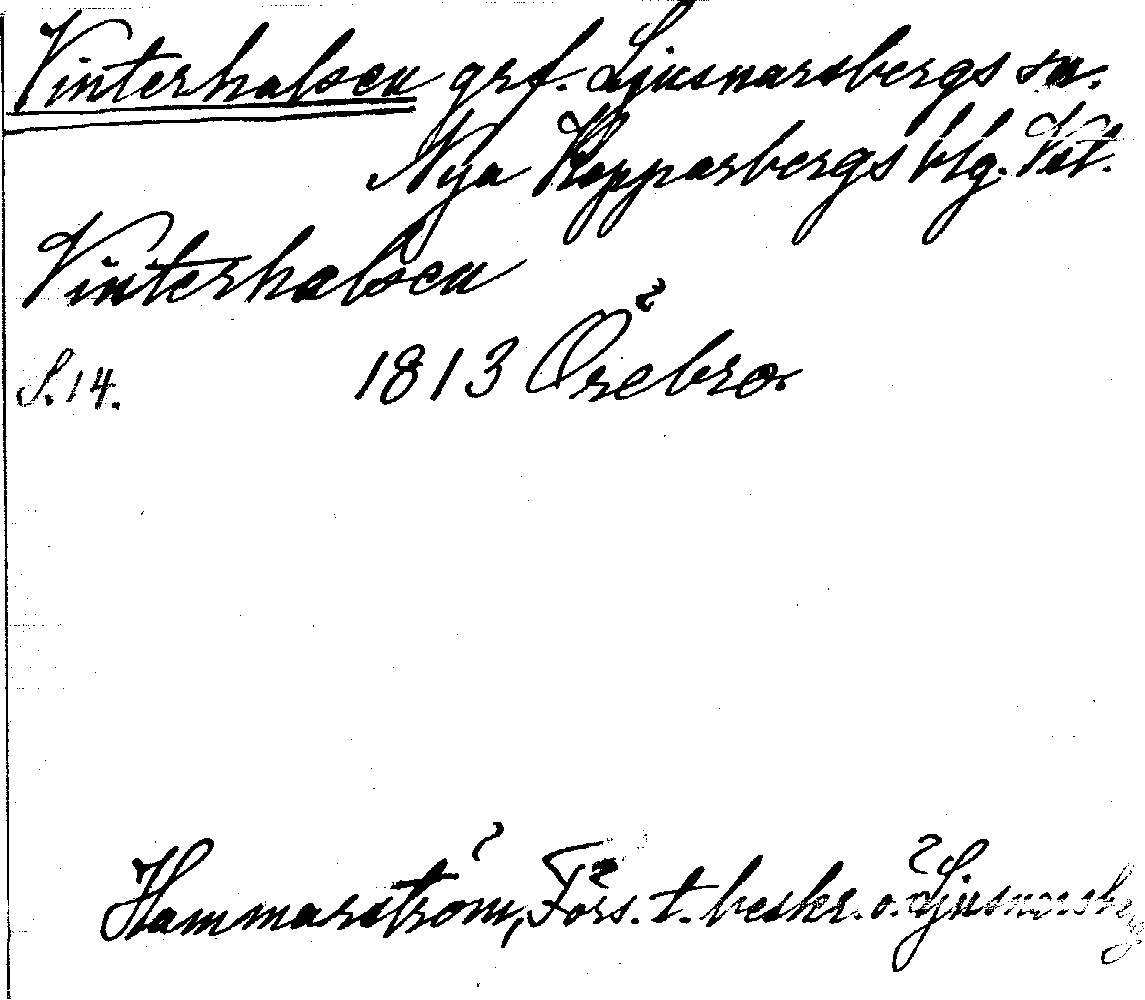 Vinterhalsen grf. Ljusnarsbergs sn.
Nya Kopparbergs blg. Vstm.
Vinterhalsen
S. 14. 1813 Örebro
Hammarström, Förs. t. beskr. ö. Ljusnarsberg